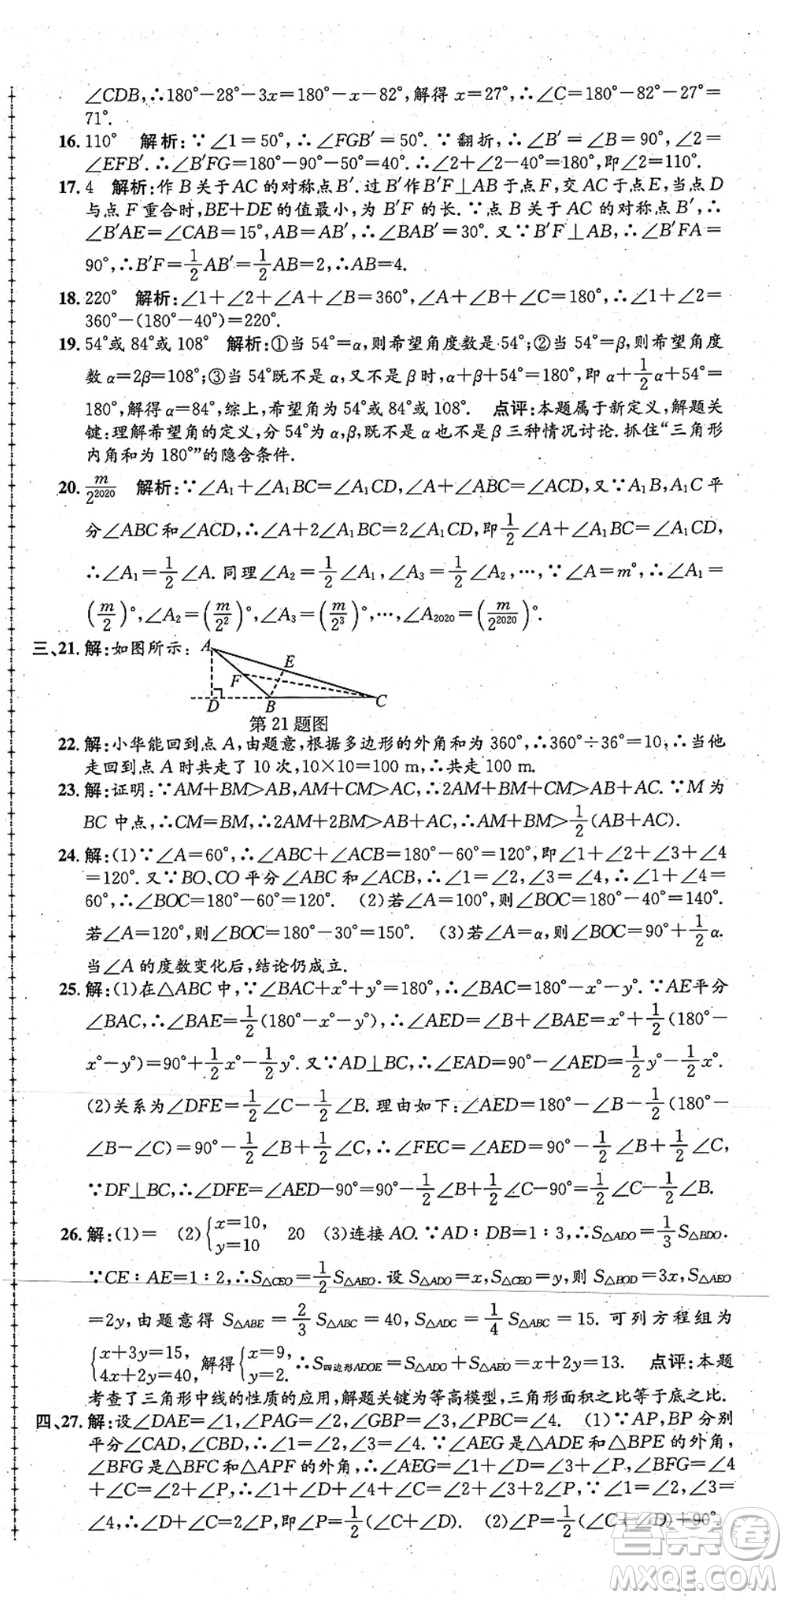 ∠CDB,∴180°－28°－3x=180°－x－82°,解得 x=27°,∴∠C=180°－82°－27°=
71°.
16. 110° 解析:∵∠1=50°,∴∠FGB′=50°.∵翻折,∴∠B′=∠B=90°,∠2=
∠EFB′.∴∠B′FG=180°－90°－50°=40°.∴∠2+∠2－40°=180°,即∠2=110°.
17. 4 解析:作 B 关于 AC 的对称点 B′.过 B′作 B′F⊥AB 于点 F,交 AC 于点 E,当点 D
与点 F 重合时,BE+DE 的值最小,为 B′F 的长.∵点 B 关于 AC 的对称点 B′,∴
∠B′AE=∠CAB=15°,AB=AB′,∴∠BAB′=30°.又∵B′F⊥AB,∴∠B′FA=
90°,∴B′F=1/2AB′=1/2AB=2,∴AB=4.
18. 220° 解析:∠1+∠2+∠A+∠B=360°,∠A+∠B+∠C=180°,∴∠1+∠2=
360°－(180°－40°)=220°.
19. 54°或 84°或 108° 解析:①当 54°=α,则希望角度数是 54°;②当 54°=β,则希望角度
数 α=2β=108°;③当 54°既不是 α,又不是 β 时,α+β+54°=180°,即 α+1/2α+54°=
180°,解得 α=84°,综上,希望角为 54°或 84°或 108°. 点评:本题属于新定义,解题关
键:理解希望角的定义,分 54°为 α,β,既不是 α 也不是 β 三种情况讨论.抓住“三角形
内角和为 180°”的隐含条件.
20. m/2²⁰²⁰ 解析:∵∠A₁+∠A₁BC=∠A₁CD,∠A+∠ABC=∠ACD,又∵A₁B,A₁C 平
分∠ABC 和∠ACD,∴∠A+2∠A₁BC=2∠A₁CD,即1/2∠A+∠A₁BC=∠A₁CD,
∴∠A₁=1/2∠A.同理∠A₂=1/2∠A₁,∠A₃=1/2∠A₂,…,∵∠A=m°,∴∠A₁=
(m/2)°,∠A₂=(m/2²)°,∠A₃=(m/2³)°,…,∠A₂₀₂₀=(m/2²⁰²⁰)°.
三、21. 解:如图所示:
A
E
F
D
B
C
第 21 题图
22. 解:小华能回到点 A,由题意,根据多边形的外角和为 360°,∴360°÷36°=10,∴当他
走回到点 A 时共走了 10 次,10×10=100 m,∴共走 100 m.
23. 解:证明:∵AM+BM>AB,AM+CM>AC,∴2AM+BM+CM>AB+AC.∵M 为
BC 中点,∴CM=BM,∴2AM+2BM>AB+AC,∴AM+BM>1/2(AB+AC).
24. 解:(1)∵∠A=60°,∴∠ABC+∠ACB=180°－60°=120°,即∠1+∠2+∠3+∠4
=120°.又∵BO、CO 平分∠ABC、∠ACB,∴∠1=∠2,∠3=∠4,∴∠1+∠4=
60°,∴∠BOC=180°－60°=120°. (2)若∠A=100°,则∠BOC=180°－40°=140°.
若∠A=120°,则∠BOC=180°－30°=150°. (3)若∠A=α,则∠BOC=90°+1/2α.
当∠A 的度数变化后,结论仍成立.
25. 解:(1)在△ABC 中,∵∠BAC+x°+y°=180°,∴∠BAC=180°－x°－y°.∵AE平分
∠BAC,∴∠BAE=1/2(180°－x°－y°),∴∠AED=∠B+∠BAE=x°+1/2(180°－
x°－y°)=90°+1/2x°－1/2y°.又∵AD⊥BC,∴∠EAD=90°－∠AED=1/2y°－1/2x°.
(2)关系为∠DFE=1/2∠C－1/2∠B.理由如下:∠AED=180°－∠B－1/2(180°－
∠B－∠C)=90°－1/2∠B+1/2∠C,∴∠FEC=∠AED=90°－1/2∠B+1/2∠C,
∵DF⊥BC,∴∠DFE=∠AED－90°=90°－1/2∠B+1/2∠C－90°=1/2∠C－1/2∠B.
26. 解:(1)= (2){x=10, y=10 20 (3)连接 AO.∵AD∶DB=1∶3,∴S△ADO=1/3S△BDO.
∵CE∶AE=1∶2,∴S△CEO=1/2S△AEO.设 S△ADO=x,S△CEO=y,则 S△BOD=3x,S△AEO
=2y,由题意得 S△ABE=2/3S△ABC=40,S△ADC=1/4S△ABC=15.可列方程组为
{x+3y=15, 4x+2y=40,解得{x=9, y=2,∴S四边形ADOE=S△ADO+S△AEO=x+2y=13. 点评:本题
考查了三角形中线的性质的应用,解题关键为等高模型,三角形面积之比等于底之比.
四、27. 解:设∠DAE=∠1,∠PAG=∠2,∠GBP=∠3,∠PBC=∠4. (1)∵AP,BP 分别
平分∠CAD,∠CBD,∴∠1=∠2,∠3=∠4.∵∠AEG是△ADE和△BPE的外角,
∠BFG是△BFC和△AGF的外角,∴∠AEG=∠1+∠D=∠3+∠P,∠BFG=∠4
+∠C=∠2+∠P,∴∠1+∠D+∠4+∠C=∠3+∠P+∠2+∠P.∵∠1=∠2,∠3=
∠4,∴∠D+∠C=2∠P,即∠P=1/2(∠C+∠D). (2)∠P=1/2(∠C+∠D)+90°.
答案圈
MXQE.COM